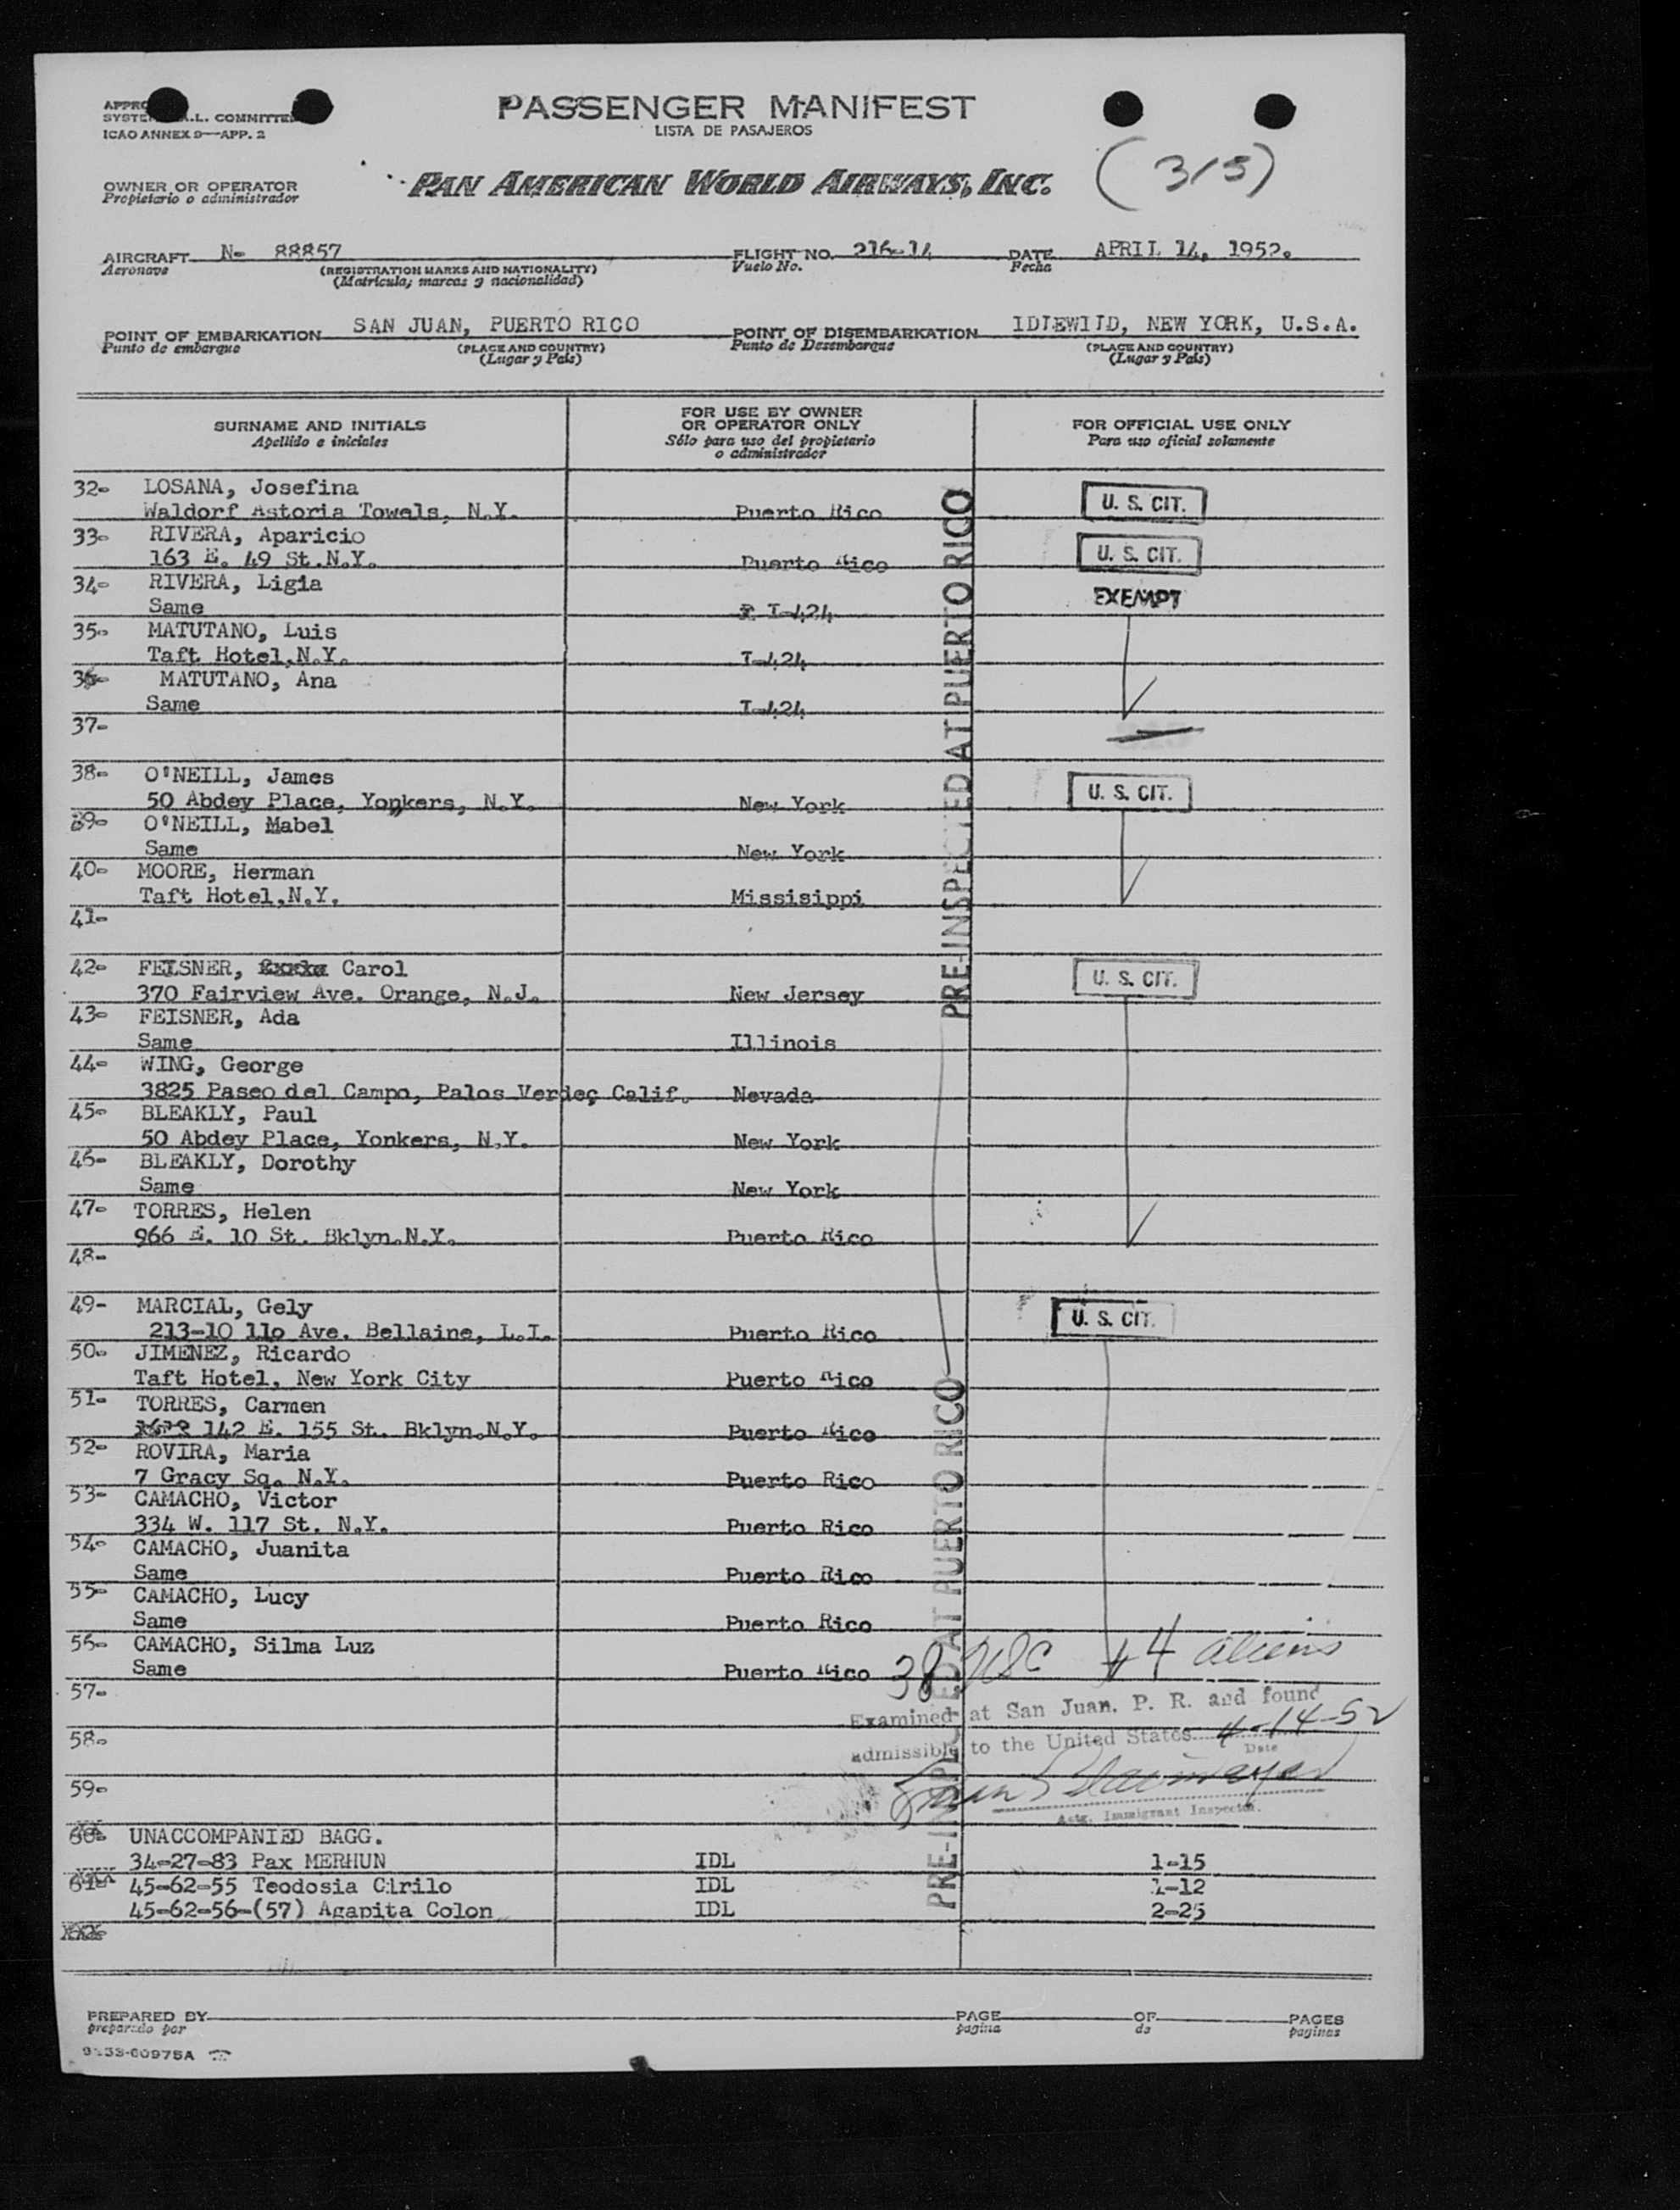 PASSENGER MANIFEST
LISTA DE PASAJEROS
ICAO ANNEX 9—APP. 2
(3/5)
OWNER OR OPERATOR
Propietario o administrador
PAN AMERICAN WORLD AIRWAYS, INC.
AIRCRAFT N- 88857 FLIGHT NO. 216-14 DATE APRIL 14, 1952.
Aeronave (REGISTRATION MARKS AND NATIONALITY) Vuelo No. Fecha
(Matrícula, marcas y nacionalidad)
POINT OF EMBARKATION SAN JUAN, PUERTO RICO POINT OF DISEMBARKATION IDLEWILD, NEW YORK, U.S.A.
Punto de embarque (PLACE AND COUNTRY) Punto de Desembarque (PLACE AND COUNTRY)
(Lugar y País) (Lugar y País)
SURNAME AND INITIALS
Apellido e iniciales
FOR USE BY OWNER
OR OPERATOR ONLY
Sólo para uso del propietario
o administrador
FOR OFFICIAL USE ONLY
Para uso oficial solamente
32- LOSANA, Josefina
Waldorf Astoria Towels, N.Y. Puerto Rico U. S. CIT.
33- RIVERA, Aparicio
163 E. 49 St.N.Y. Puerto Rico U. S. CIT.
34- RIVERA, Ligia
Same I-424 EXEMPT
35- MATUTANO, Luis
Taft Hotel,N.Y. I-424
36- MATUTANO, Ana
Same I-424
37-
38- O'NEILL, James
50 Abdey Place, Yonkers, N.Y. New York U. S. CIT.
39- O'NEILL, Mabel
Same New York
40- MOORE, Herman
Taft Hotel,N.Y. Missisippi
41-
42- FEISNER, Carol
370 Fairview Ave. Orange, N.J. New Jersey U. S. CIT.
43- FEISNER, Ada
Same Illinois
44- WING, George
3825 Paseo del Campo, Palos Verdes Calif. Nevada
45- BLEAKLY, Paul
50 Abdey Place, Yonkers, N.Y. New York
46- BLEAKLY, Dorothy
Same New York
47- TORRES, Helen
966 E. 10 St. Bklyn.N.Y. Puerto Rico
48-
49- MARCIAL, Gely
213-10 110 Ave. Bellaine, L.I. Puerto Rico U. S. CIT.
50- JIMENEZ, Ricardo
Taft Hotel, New York City Puerto Rico
51- TORRES, Carmen
142 E. 155 St. Bklyn.N.Y. Puerto Rico
52- ROVIRA, Maria
7 Gracy Sq. N.Y. Puerto Rico
53- CAMACHO, Victor
334 W. 117 St. N.Y. Puerto Rico
54- CAMACHO, Juanita
Same Puerto Rico
55- CAMACHO, Lucy
Same Puerto Rico
56- CAMACHO, Silma Luz
Same Puerto Rico
38 USC 4 aliens
57-
Examined at San Juan, P. R. and found
58-
admissible to the United States 4-14-52
Date
59-
Actg. Immigrant Inspector.
PRE-INSPECTED AT PUERTO RICO
PRE-INSPECTED AT PUERTO RICO
60- UNACCOMPANIED BAGG.
34-27-83 Pax MERHUN IDL 1-15
61- 45-62-55 Teodosia Cirilo IDL 1-12
45-62-56-(57) Agapita Colon IDL 2-25
PREPARED BY PAGE OF PAGES
preparado por pagina de paginas